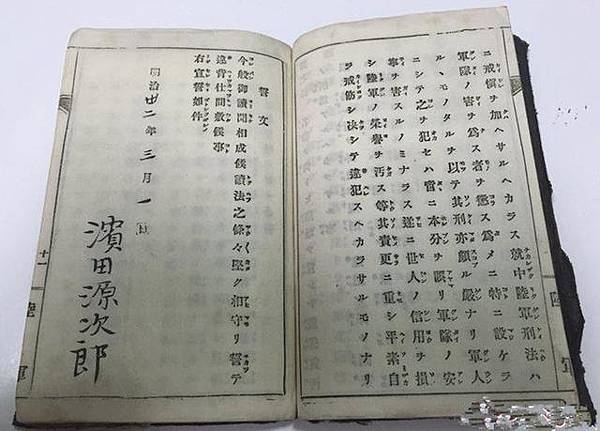 ニ戒愼ヲ加ヘサルヘカラス就中陸軍刑法ハ
軍隊ノ害ヲ爲ス者ヲ懲ス爲メニ特ニ設ケラ
ルヽモノタルヲ以テ其刑亦頗ル嚴ナリ軍人
ニシテ之ヲ犯セハ啻ニ本分ヲ誤リ軍隊ノ安
寧ヲ害スルノミナラス遂ニ世人ノ信用ヲ損
シ陸軍ノ榮譽ヲ汚ス等其責更ニ重シ平素自
ラ戒飭シ决シテ違犯スヘカラサルモノナリ
陸軍
誓文
今般御讀聞相成候讀法之條々堅ク相守リ誓テ
違背仕間敷候事
右宣誓如件
明治廿二年三月一日
濱田源次郎
十一
陸軍